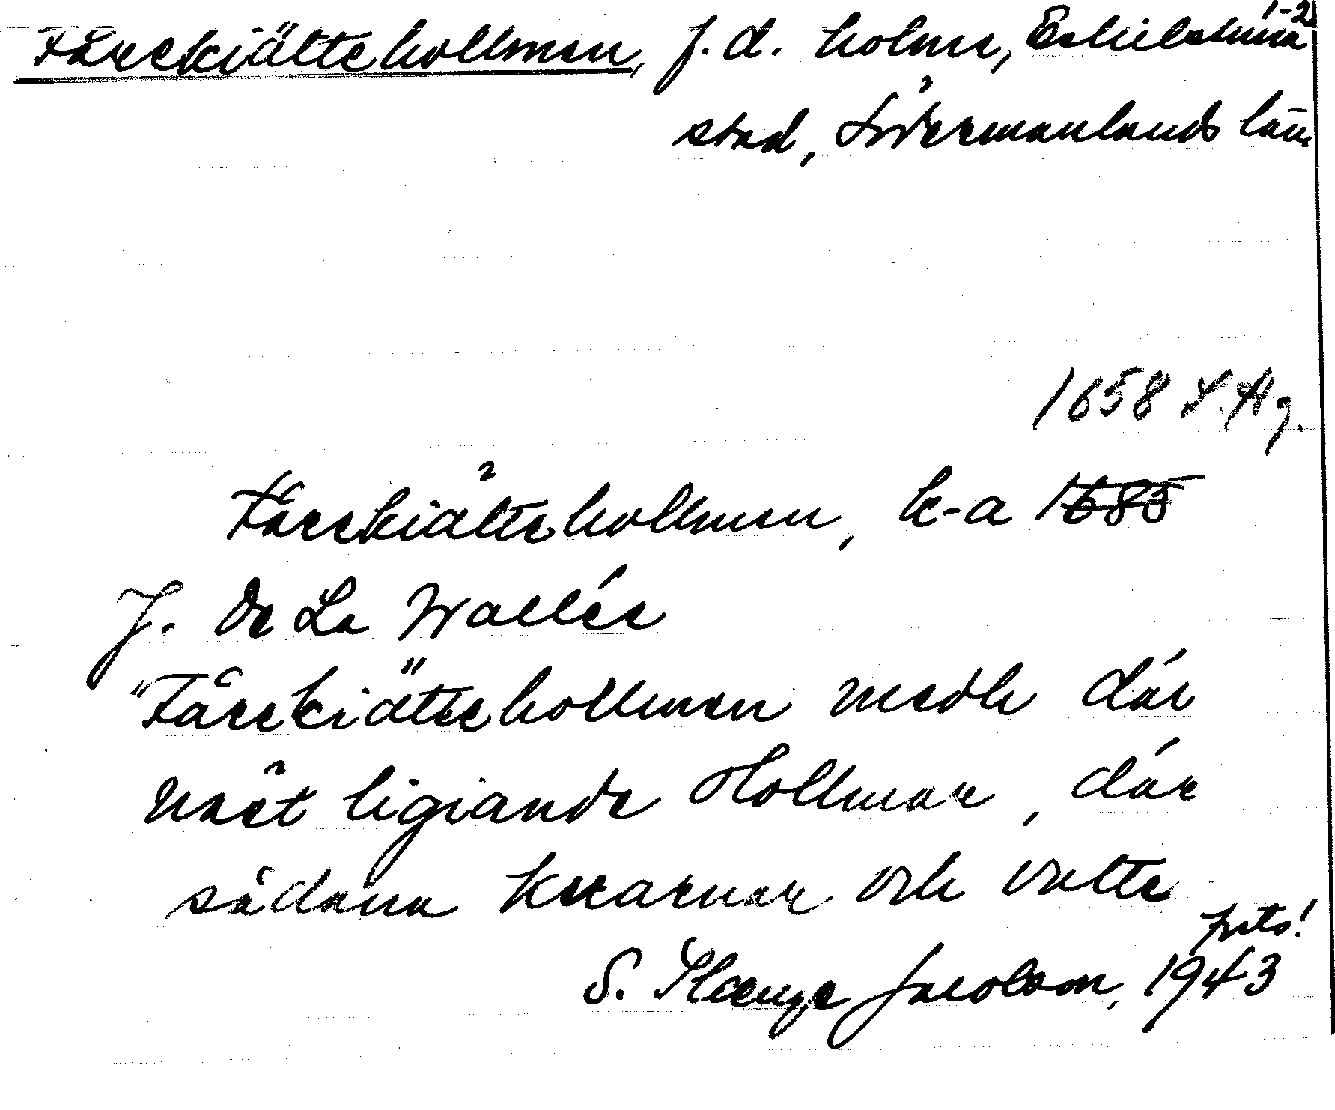 1-2
Fårekiätteholmen, f. d. holme, Eskilstuna
stad, Södermanlands län
1658 S.Hg.
Fårekiätteholmen, k-a 1685
J. de La Vallée
"Fårekiätteholmen medh där
näst ligiande Hollmar, där
sådana kvarnar och vatte
forts!
Jacobson, 1943